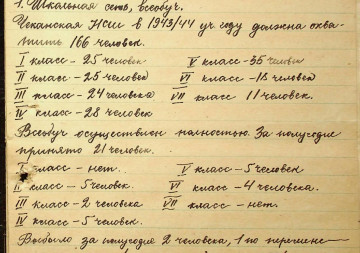 1. Школьная сеть, всеобуч.
Чеканская НСШ в 1943/44 уч. году должна охва-
тить 166 человек.
I класс - 25 человек V класс - 35 человек
II класс - 25 человек VI класс - 18 человек
III класс - 24 человека VII класс 11 человек.
IV класс - 28 человек
Всеобуч осуществлен полностью. За полугодие
принято 21 человек.
I класс - нет. V класс - 5 человек
II класс - 5 человек. VI класс - 4 человека.
III класс - 2 человека VII класс - нет.
IV класс - 5 человек.
Выбыло за полугодие 2 человека, 1 по перемене